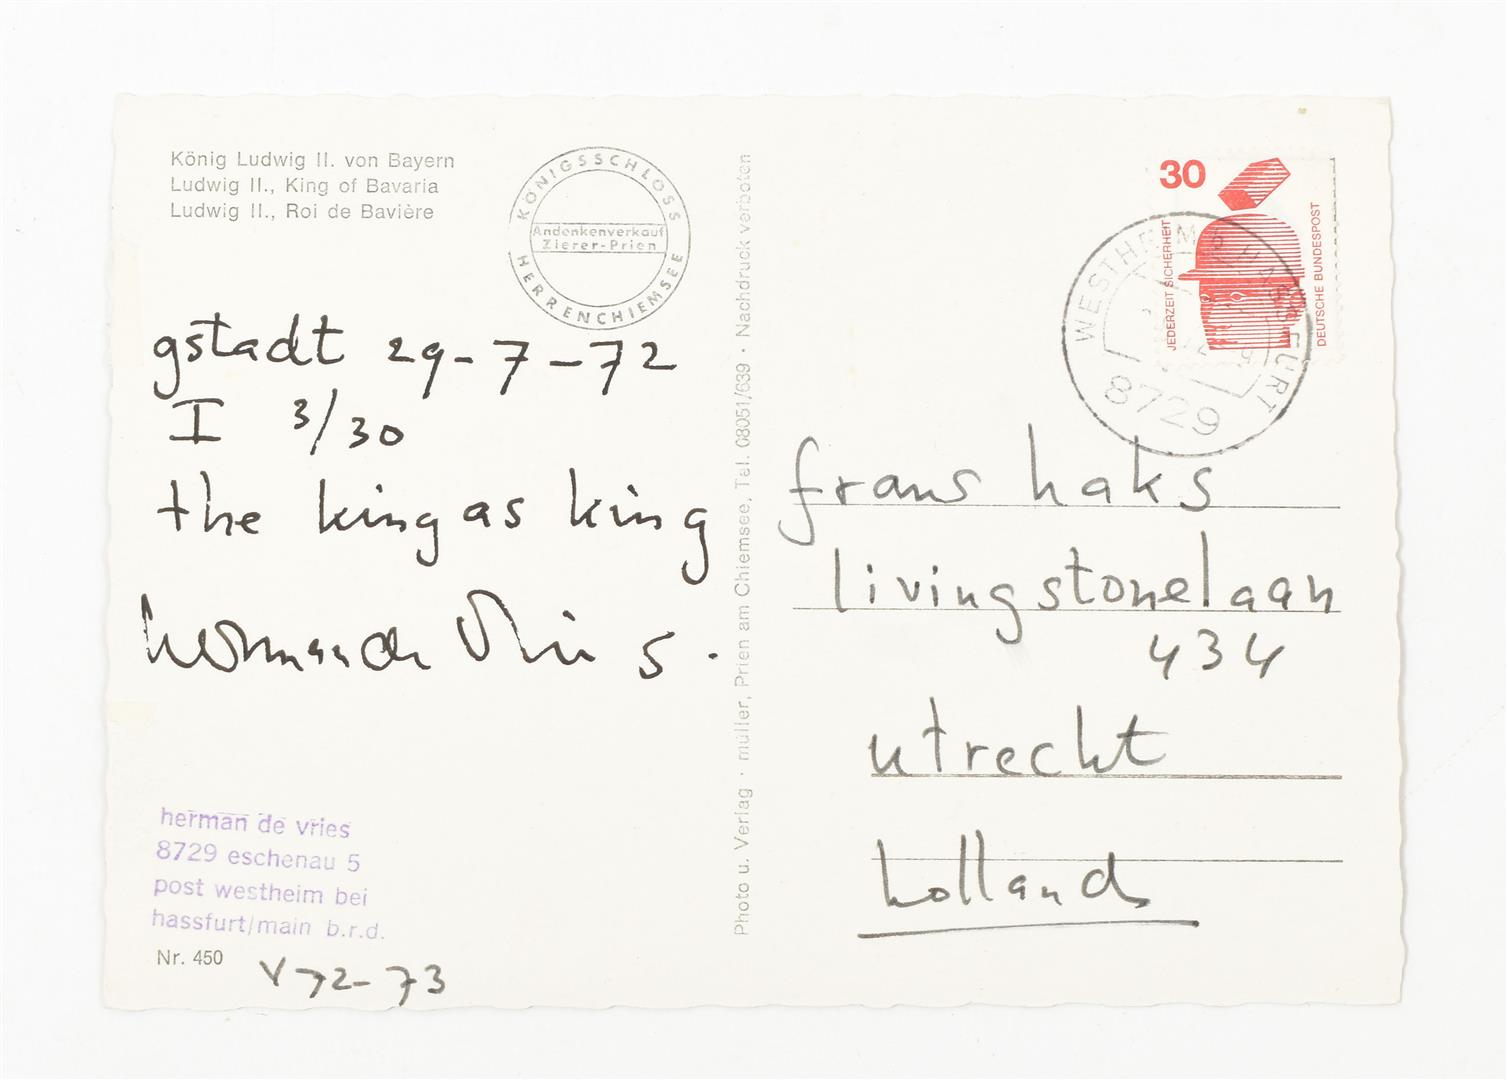 König Ludwig II. von Bayern
Ludwig II., King of Bavaria
Ludwig II., Roi de Bavière
KÖNIGSSCHLOSS
Andenkenverkauf
Zierer-Prien
HERRENCHIEMSEE
gstadt 29-7-72
I 3/30
the king as king
herman de vries.
herman de vries
8729 eschenau 5
post westheim bei
hassfurt/main b.r.d.
Nr. 450
V 72-73
Photo u. Verlag · müller, Prien am Chiemsee, Tel. 08051/639 · Nachdruck verboten
30
JEDERZEIT SICHERHEIT
DEUTSCHE BUNDESPOST
WESTHEIM HASSFURT
8729
frans haks
livingstonelaan
434
utrecht
holland